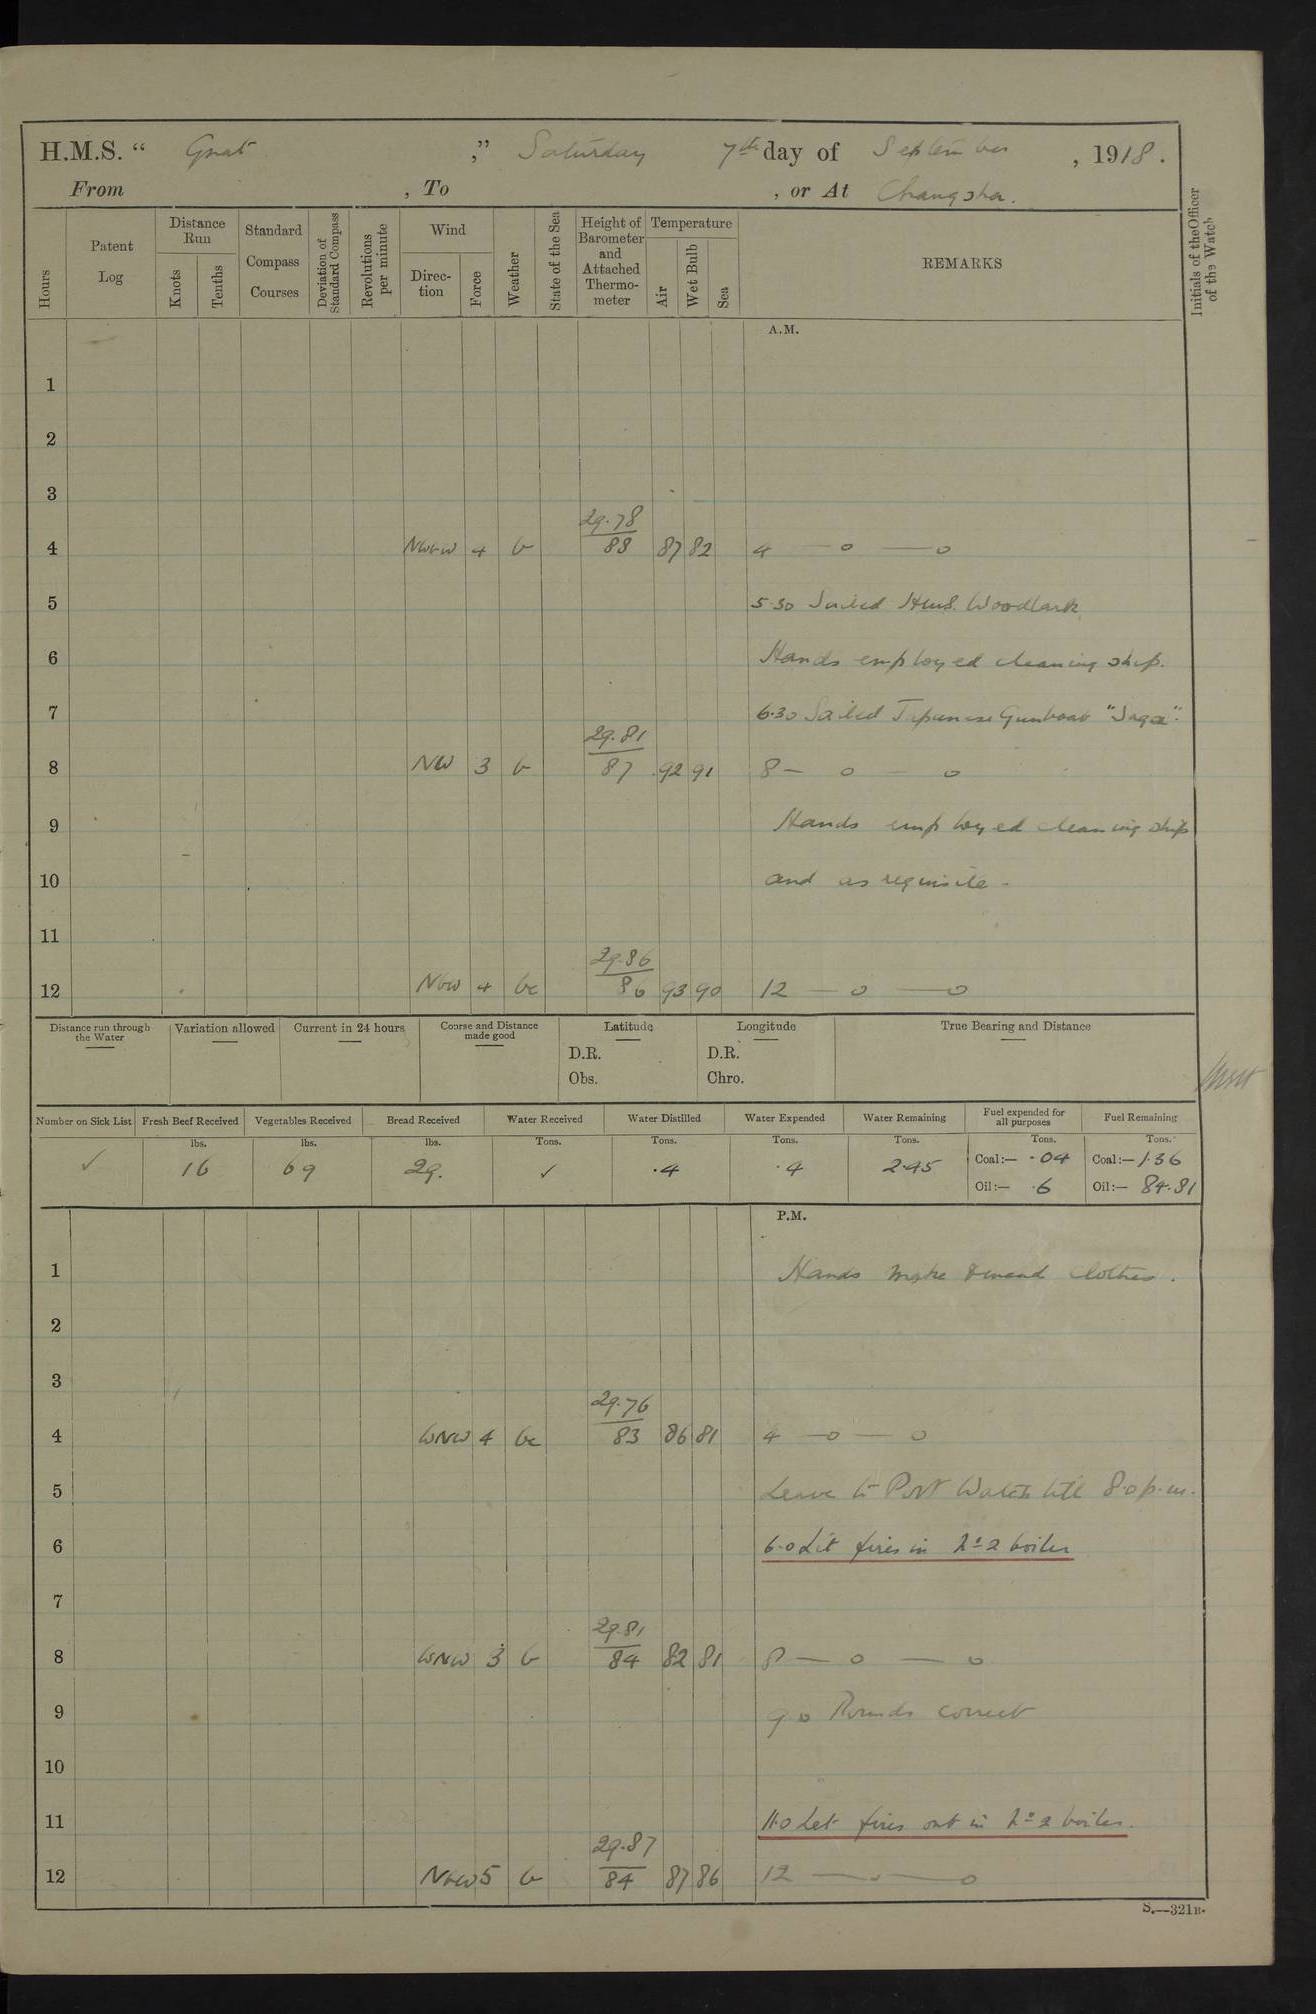 H.M.S. “ Gnat ,” Saturday 7th day of September , 1918.
From , To , or At Changsha.
Hours
Patent Log
Distance Run
Knots
Tenths
Standard Compass Courses
Deviation of Standard Compass
Revolutions per minute
Wind
Direction
Force
Weather
State of the Sea
Height of Barometer and Attached Thermometer
Temperature
Air
Wet Bulb
Sea
REMARKS
Initials of the Officer of the Watch
A.M.
1
2
3
29.78
4 NWbW 4 b 88 87 82 4 — o — o
5 5.30 Sailed HMS. Woodlark
6 Hands employed cleaning ship.
7 6.30 Sailed Japanese Gunboat "Saga".
29.81
8 NW 3 b 87 92 91 8 — o — o
9 Hands employed cleaning ship
10 and as requisite -
11
29.86
12 NbW 4 bc 86 93 90 12 — o — o
Distance run through the Water
Variation allowed
Current in 24 hours
Course and Distance made good
Latitude
D.R.
Obs.
Longitude
D.R.
Chro.
True Bearing and Distance
Number on Sick List ✓
Fresh Beef Received lbs. 16
Vegetables Received lbs. 69
Bread Received lbs. 29.
Water Received Tons. ✓
Water Distilled Tons. .4
Water Expended Tons. .4
Water Remaining Tons. 2.45
Fuel expended for all purposes Tons. Coal:— .04 Oil:— .6
Fuel Remaining Tons. Coal:— 1.36 Oil:— 84.81
P.M.
1 Hands make & mend clothes.
2
3
29.76
4 WNW 4 bc 83 86 81 4 — o — o
5 Leave to Port Watch till 8.0 p.m.
6 6.0 Lit fires in No 2 boiler
7
29.81
8 WNW 3 b 84 82 81 8 — o — o
9 9.0 Rounds correct
10
11 11.0 Let fires out in No 2 boiler.
29.87
12 NbW 5 b 84 87 86 12 — o — o
S.—321B.